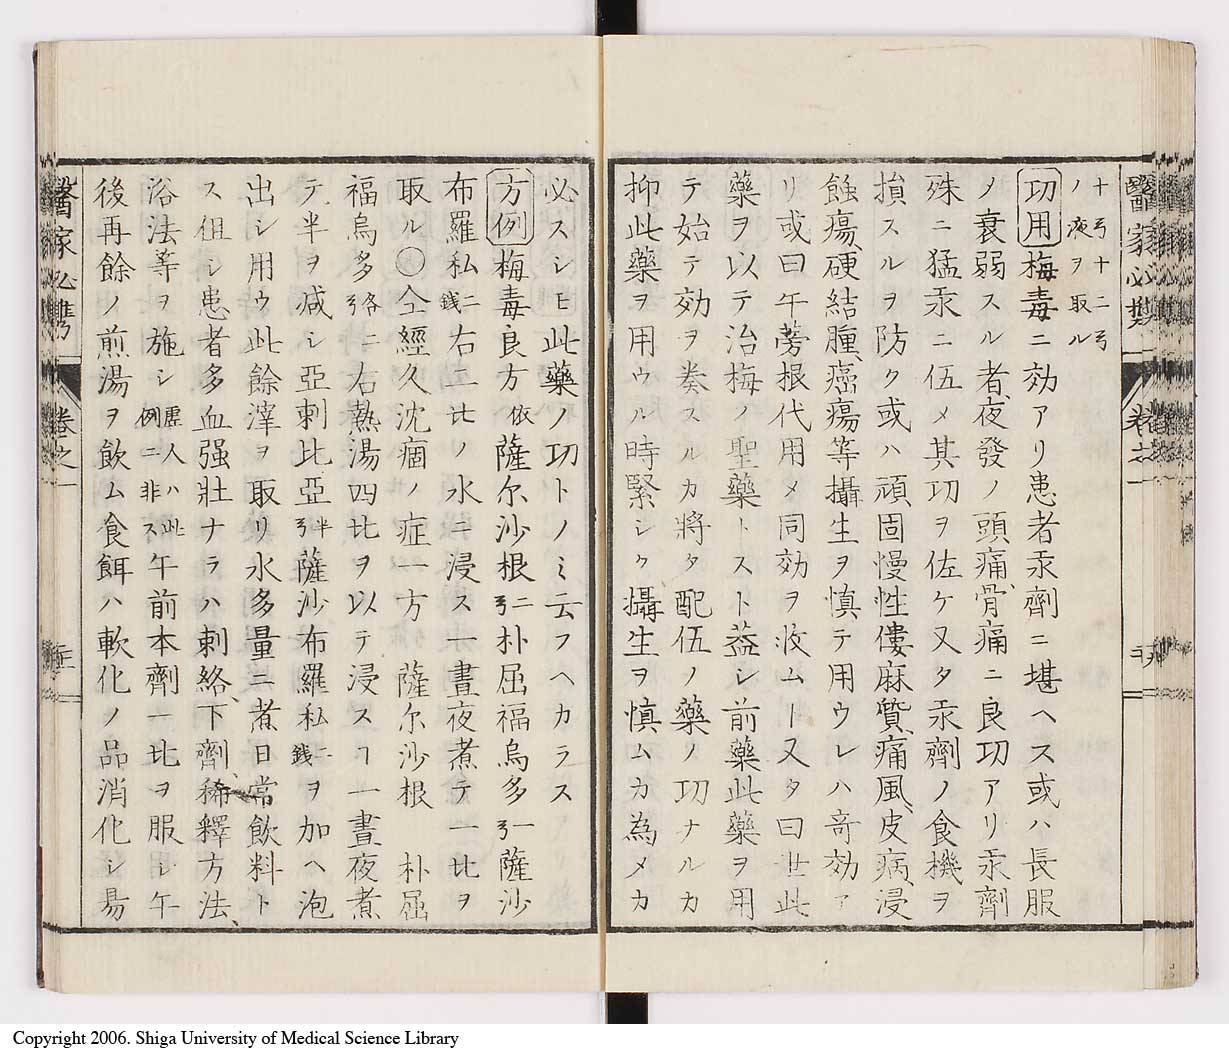 醫家必携 卷之一
十ヨ十二ヨ
ノ夜ヲ取ル
功用 梅毒ニ効アリ患者汞劑ニ堪ヘス或ハ長服
ノ衰弱スル者、夜發ノ頭痛、骨痛ニ良功アリ汞劑
殊ニ猛汞ニ伍メ其功ヲ佐ケ又タ汞劑ノ食機ヲ
損スルヲ防ク或ハ頑固慢性僂麻質、痛風、皮病、浸
蝕瘍、硬結腫、癌瘍等攝生ヲ慎テ用ウレハ竒効ア
リ或曰午蒡根代用メ同効ヲ收ムー又タ曰世此
藥ヲ以テ治梅ノ聖藥トスト葢シ前藥此藥ヲ用
テ始テ効ヲ奏スルカ將タ配伍ノ藥ノ功ナルカ
抑此藥ヲ用ウル時緊シク攝生ヲ慎ムカ為メカ
必スシヒ此藥ノ功トノミ云フヘカラス
方例 梅毒良方 依 薩尓沙根 二ヨ 朴屈福烏多 一ヨ 薩沙
布羅私 二錢 右二比ノ水ニ浸ス一晝夜煮テ一比ヲ
取ル〇仝經久沈痼ノ症一方 薩尓沙根 朴屈
福烏多 各ヨ ニ右熱湯四比ヲ以テ浸スヿ一晝夜煮
テ半ヲ减シ亞剌比亞 半ヨ 薩沙布羅私 二錢 ヲ加ヘ泡
出シ用ウ此餘滓ヲ取リ水多量ニ煮日常飲料ト
ス但シ患者多血强壯ナラハ刺絡、下劑、稀釋方法、
浴法等ヲ施シ 虚人ハ此例ニ非ス 午前本劑一比ヲ服シ午
後再餘ノ煎湯ヲ飲ム食餌ハ軟化ノ品消化シ易
醫家必携 卷之一
Copyright 2006. Shiga University of Medical Science Library